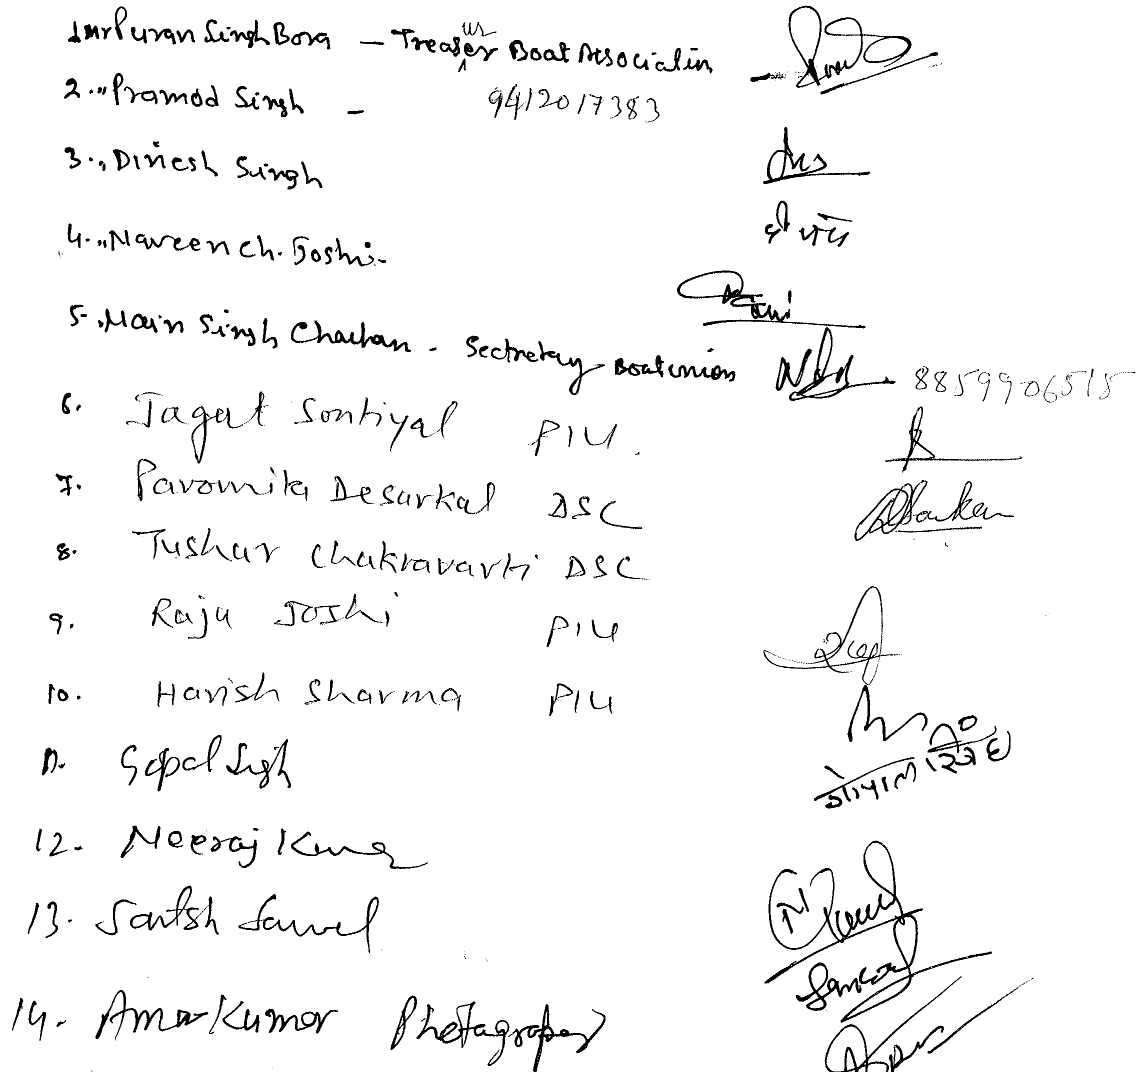 1 Mr Puran Singh Bora – Treasurer Boat Association
2. " Pramod Singh – 9412017383
3. " Dinesh Singh
4. " Naveen ch. Joshi -
5. " Main Singh Chauhan - Sectretay Boat union 8859906515
6. Jagat Sontiyal PIU.
7. Paromita Desarkal DSC
8. Tushar Chakravarti DSC
9. Raju Joshi PIU
10. Harish Sharma PIU
11. Gopal Sigh गोपाल सिंह
12. Neeraj Kumar
13. Santsh
14. Amar Kumar Photagraper